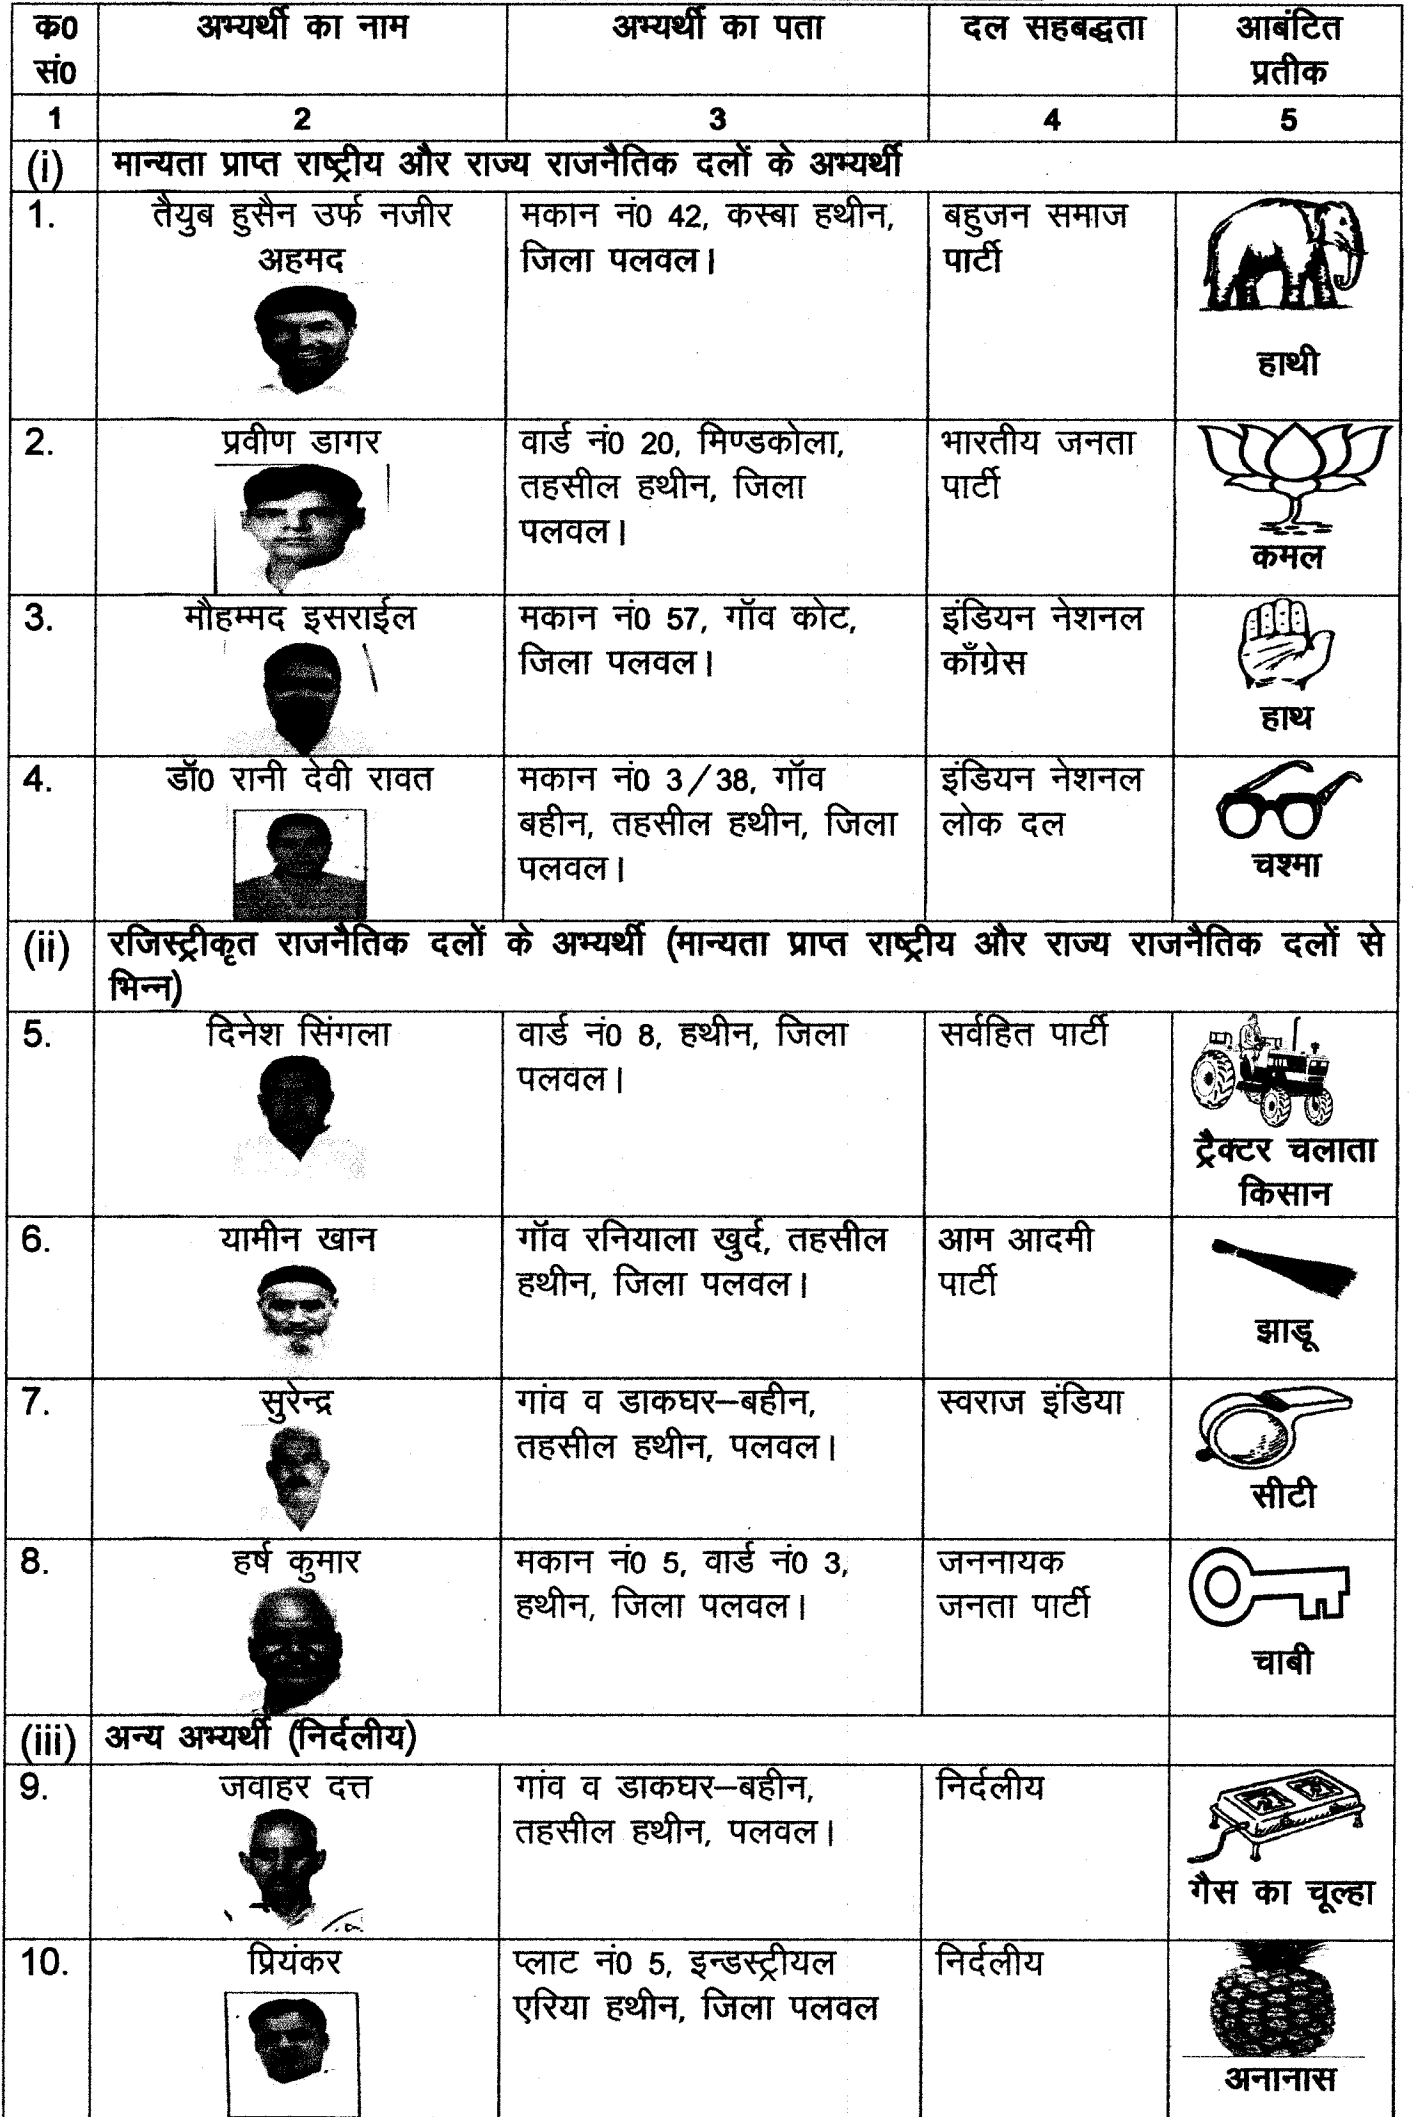 क0 सं0 अभ्यर्थी का नाम अभ्यर्थी का पता दल सहबद्धता आबंटित प्रतीक
1 2 3 4 5
(i) मान्यता प्राप्त राष्ट्रीय और राज्य राजनैतिक दलों के अभ्यर्थी
1. तैयुब हुसैन उर्फ नजीर
अहमद
मकान नं0 42, कस्बा हथीन,
जिला पलवल।
बहुजन समाज
पार्टी
हाथी
2. प्रवीण डागर
वार्ड नं0 20, मिण्डकोला,
तहसील हथीन, जिला
पलवल।
भारतीय जनता
पार्टी
कमल
3. मौहम्मद इसराईल
मकान नं0 57, गॉव कोट,
जिला पलवल।
इंडियन नेशनल
काँग्रेस
हाथ
4. डॉ0 रानी देवी रावत
मकान नं0 3/38, गॉव
बहीन, तहसील हथीन, जिला
पलवल।
इंडियन नेशनल
लोक दल
चश्मा
(ii) रजिस्ट्रीकृत राजनैतिक दलों के अभ्यर्थी (मान्यता प्राप्त राष्ट्रीय और राज्य राजनैतिक दलों से
भिन्न)
5. दिनेश सिंगला
वार्ड नं0 8, हथीन, जिला
पलवल।
सर्वहित पार्टी
ट्रैक्टर चलाता
किसान
6. यामीन खान
गॉव रनियाला खुर्द, तहसील
हथीन, जिला पलवल।
आम आदमी
पार्टी
झाडू
7. सुरेन्द्र
गांव व डाकघर–बहीन,
तहसील हथीन, पलवल।
स्वराज इंडिया
सीटी
8. हर्ष कुमार
मकान नं0 5, वार्ड नं0 3,
हथीन, जिला पलवल।
जननायक
जनता पार्टी
चाबी
(iii) अन्य अभ्यर्थी (निर्दलीय)
9. जवाहर दत्त
गांव व डाकघर–बहीन,
तहसील हथीन, पलवल।
निर्दलीय
गैस का चूल्हा
10. प्रियंकर
प्लाट नं0 5, इन्डस्ट्रीयल
एरिया हथीन, जिला पलवल
निर्दलीय
अनानास